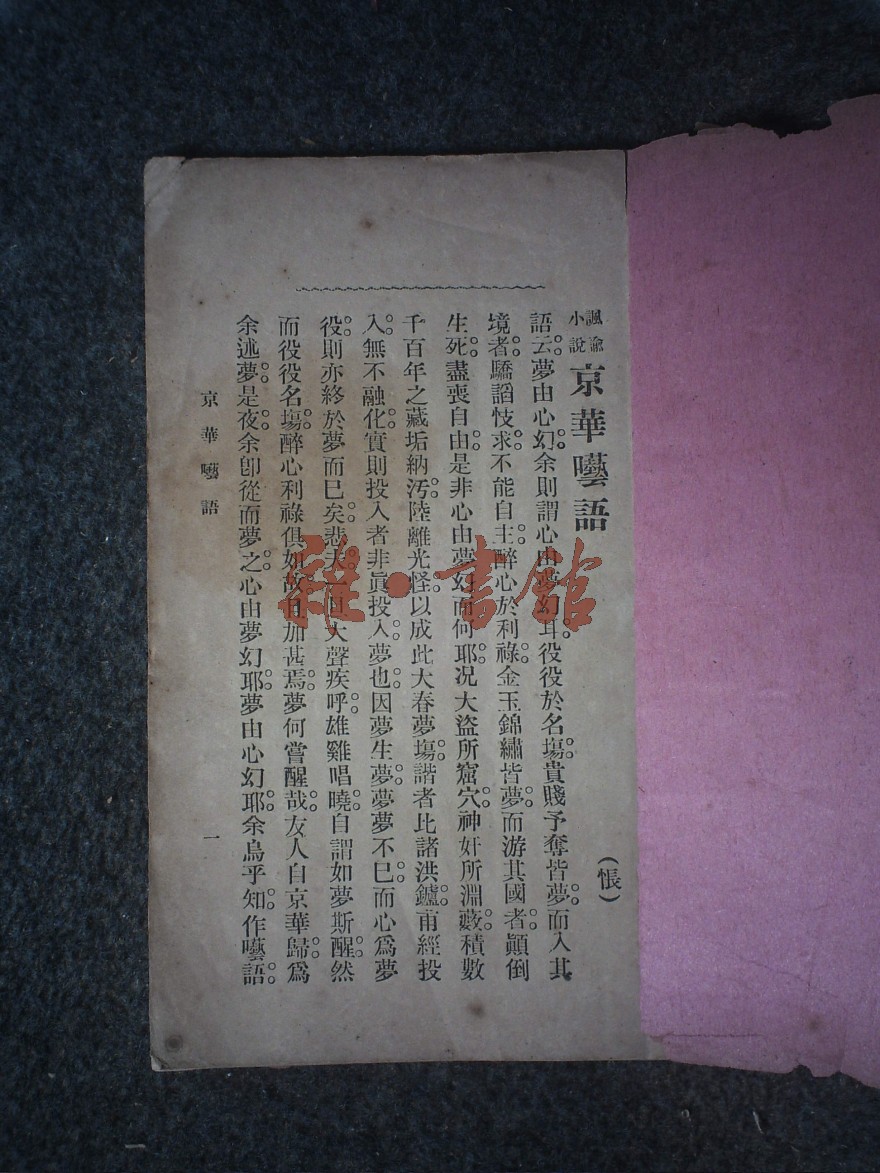 諷諭小說 京華囈語
(悵)
語云夢由心幻余則謂心由夢幻耳役役於名塲貴賤予奪皆夢而入其
境者驕謟忮求不能自主醉心於利祿金玉錦繡皆夢而游其國者顚倒
生死盡喪自由是非心由夢幻而何耶况大盜所窟穴神奸所淵藪積數
千百年之藏垢納汚陸離光怪以成此大春夢塲諧者比諸洪鑪甫經投
入無不融化實則投入者非眞投入夢也因夢生夢夢夢不已而心爲夢
役則亦終於夢而已矣悲夫一旦大聲疾呼雄雞唱曉自謂如夢斯醒然
而役役名塲醉心利祿俱如故且加甚焉夢何嘗醒哉友人自京華歸爲
余述夢是夜余卽從而夢之心由夢幻耶夢由心幻耶余烏乎知作囈語
京華囈語
一
雅·書館